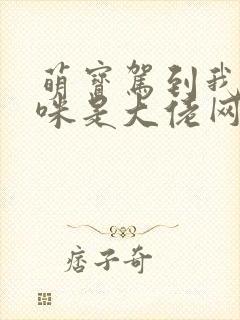 萌寳駕到我
咪是大佬网
痞子奇